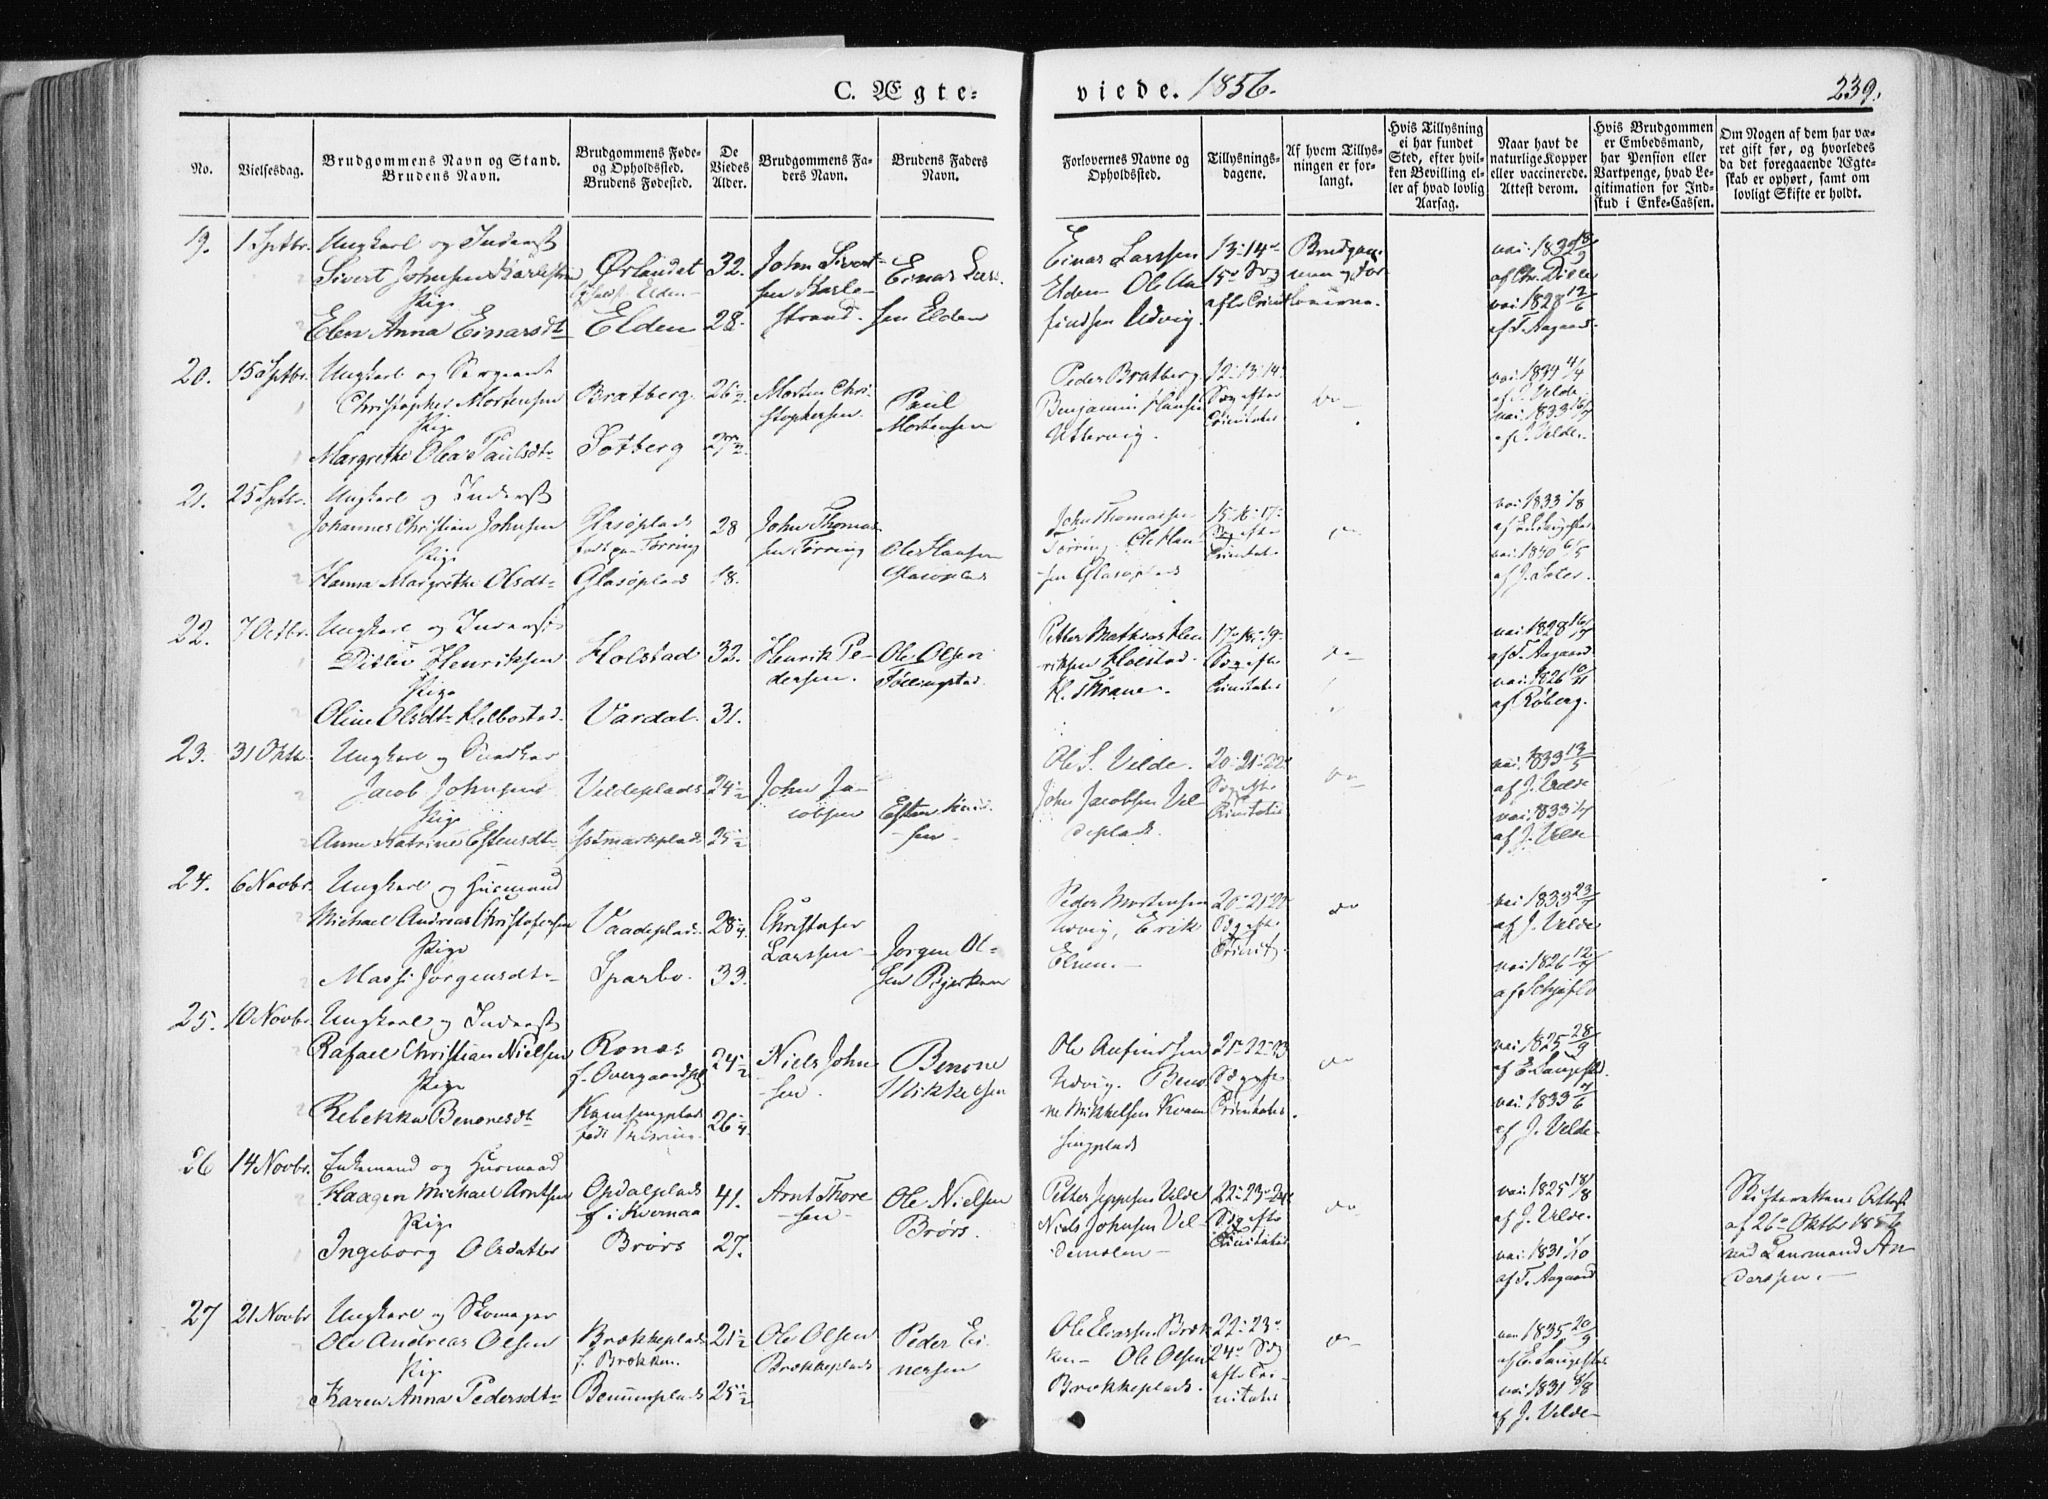 C. Ægte-
viede. 1856.
239.
No.
Vielsesdag.
Brudgommens Navn og Stand.
Brudens Navn.
Brudgommens Føde-
og Opholdssted.
Brudens Fødested.
De
Viedes
Alder.
Brudgommens Fa-
ders Navn.
Brudens Faders
Navn.
Forlovernes Navne og
Opholdssted.
Tillysnings-
dagene.
Af hvem Tillys-
ningen er for-
langt.
Hvis Tillysning
ei har fundet
Sted, efter hvil-
ken Bevilling el-
ler af hvad lovlig
Aarsag.
Naar havt de
naturlige Kopper
eller vaccinerede.
Attest derom.
Hvis Brudgommen
er Embedsmand,
har Pension eller
Vartpenge, hvad Le-
gitimation for Ind-
skud i Enke-Cassen.
Om Nogen af dem har væ-
ret gift før, og hvorledes
da det foregaaende Ægte-
skab er ophørt, samt om
lovligt Skifte er holdt.
19. 1 Sptbr.
Ungkarl og Inderst
Sivert Johnsen Karlestrand
Pige
Elen Anna Einarsdtr
Ørlandet
Elden
32.
28.
John Sivert-
sen Karle-
strand.
Einar Lars-
sen Elden
Einar Larssen
Elden Ole An
findsen Udvig.
13- 14-
15- Søg
efter Trinit
Brudgom-
men og For
loverne.
vac: 1832 18/9
af Chr. Ditlev
vac: 1828 12/6
af T. Aagaard.
20. 15 Sptbr.
Ungkarl og Sergeant
Christopher Mortensen
Pige
Margrethe Olea Paulsdtr
Bratberg
Solberg
26 1/2
27 1/2
Morten Chri-
stophersen
Paul
Mortensen
Peder Bratberg
Benjamin Hansen
Utvorvig.
12- 13- 14-
Søg efter
Trinitatis
do
vac: 1834 4/4
af J. Velde
vac: 1833
af J. Velde.
21. 25 Sptbr.
Ungkarl og Inderst
Johannes Christian Johnsen
Pige
Hanna Margrethe Olsdtr
Glasøplads
født paa Tørring
Glasøplads
28
18.
John Thomas-
sen Tørring
Ole Hansen
Glasøplads
John Thomassen
Tørring Ole Han
sen Glasøplads
15- 16- 17-
Søg efter
Trinitatis
do
vac: 1833
vac: 1840 6/5
22. 7 Octbr.
Ungkarl og Inderst
Ditlev Henriksen
Pige
Oline Olsdtr Helbostad.
Holstad
Vardal.
32.
31.
Henrik Pe-
dersen.
Ole Olsen
Petter Mathias Hen
riksen Holstad.
H. Krane.
17- 18- 19-
Søg efter
Trinitatis
do
vac: 1828
af T. Aagaard
vac: 1826 10/11
af Røberg.
23. 31 Oktbr.
Ungkarl og
Jacob Johnsen
Pige
Anne Katrine Estensdtr
Veldeplads
Østmarkplads
24 1/2
25 1/2
John Ja-
cobsen
Esten
sen
Ole S. Velde.
John Jacobsen Vel
deplads.
20- 21- 22-
Søg efter
Trinitatis
do
vac: 1833 13/5
af J. Velde
vac: 1833
af J. Velde
24. 6 Novbr.
Ungkarl og Huusmand
Michael Andreas Christophersen
Pige
Massi Jørgensdtr
Vaadeplads
Sparbo.
28 1/4
33.
Christofer
Larssen
Jørgen Ol-
sen Bjerkem
Peder Mortensen
Udvig, Erik
Elnen.
20- 21- 22-
Søg efter
Trinit.
do
vac: 1833 23/7
af J. Velde
vac: 1826 12/7
25. 10 Novbr.
Ungkarl og Inderst
Rafael Christian Nielsen
Pige
Rebekka Benonesdtr
Ronæs
f. Overgaardspl
24 1/2
26 1/4
Niels John
sen
Benone
Mikkelsen
Ole Anfindsen
Udvig. Beno
ne Mikkelsen Kvam
singplads
21- 22- 23
Søg efter
Trinitatis.
do
vac: 1825 28/9
vac: 1833
af J. Velde
26 14 Novbr.
Enkemand og Huusmand
Haagen Michael Arntsen
Pige
Ingeborg Olsdatter
Opdalplads
f. i Kvernaa
Brørs
41.
27.
Arnt Thore
sen
Ole Nielsen
Brørs.
Petter Jeppesen Velde
Niels Johnsen Vel-
demolen
22- 23- 24-
Søg efter
Trinitatis
do
vac: 1825 18/8
af J. Velde.
vac: 1831
af T. Aagaard
Skifterettens Attest
af 26- Oktbr 1856
ved Lensmand An
derssen.
27 21 Novbr
Ungkarl og Skomager
Ole Andreas Olsen
Pige
Karen Anna Pedersdtr
Brækkeplads
f. Brækken.
Bennumplads
21 1/2
25 1/2
Ole Olsen
Brækkeplads
Peder Ei
nersen
Ole Eliassen Bræk
ken Ole Olsen
Brækkeplads.
22- 23-
24- Søg
efter Tri-
nitatis
do
vac 1835 20/9
vac: 1831 8/8
af J. Velde